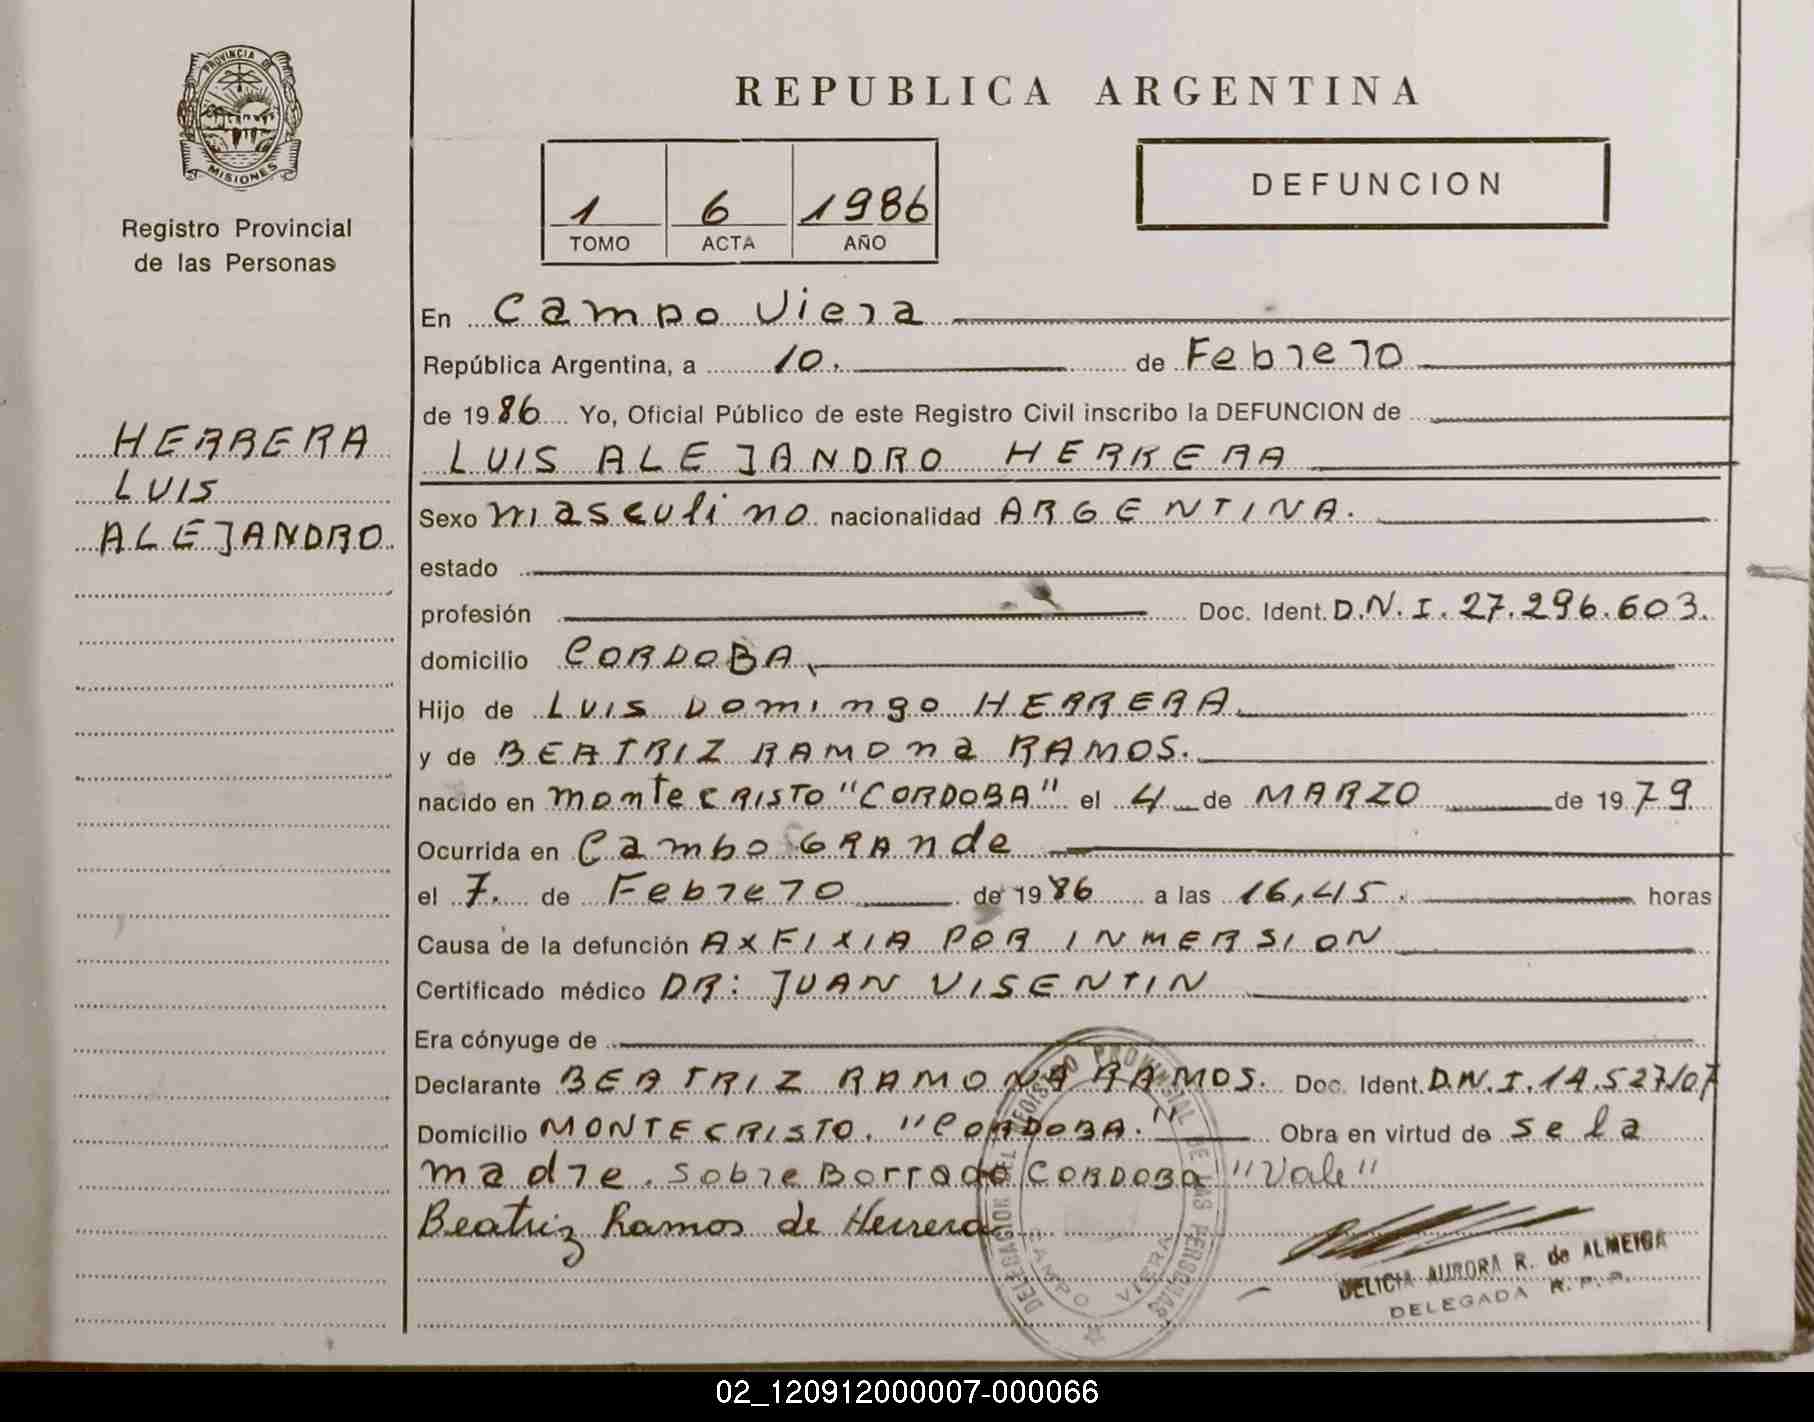 PROVINCIA DE
MISIONES
Registro Provincial
de las Personas
HERRERA
LUIS
ALEJANDRO
REPUBLICA ARGENTINA
1 6 1986
TOMO ACTA AÑO
DEFUNCION
En Campo Viera
República Argentina, a 10. de Febrero
de 1986 Yo, Oficial Público de este Registro Civil inscribo la DEFUNCION de
LUIS ALEJANDRO HERRERA
Sexo masculino nacionalidad ARGENTINA.
estado
profesión Doc. Ident. D.N.I. 27.296.603.
domicilio CORDOBA
Hijo de LUIS Domingo HERRERA
y de BEATRIZ RAMONa RAMOS.
nacido en monteCRISTO "CORDOBA" el 4 de MARZO de 1979
Ocurrida en Campo GRAnde
el 7. de Febrero de 1986 a las 16,45. horas
Causa de la defunción AXFIXIA POR INMERSION
Certificado médico DR: JUAN VISENTIN
Era cónyuge de
Declarante BEATRIZ RAMONA RAMOS. Doc. Ident. D.N.I. 14.527107
Domicilio MONTECRISTO. "CORDOBA." Obra en virtud de se la
madre. Sobre Borrado CORDOBA "Vale"
Beatriz Ramos de Herrera
DELEGACION DEL REGISTRO PROVINCIAL DE LAS PERSONAS
CAMPO VIERA
DELICIA AURORA R. de ALMEIDA
DELEGADA R. P. P.
02_120912000007-000066